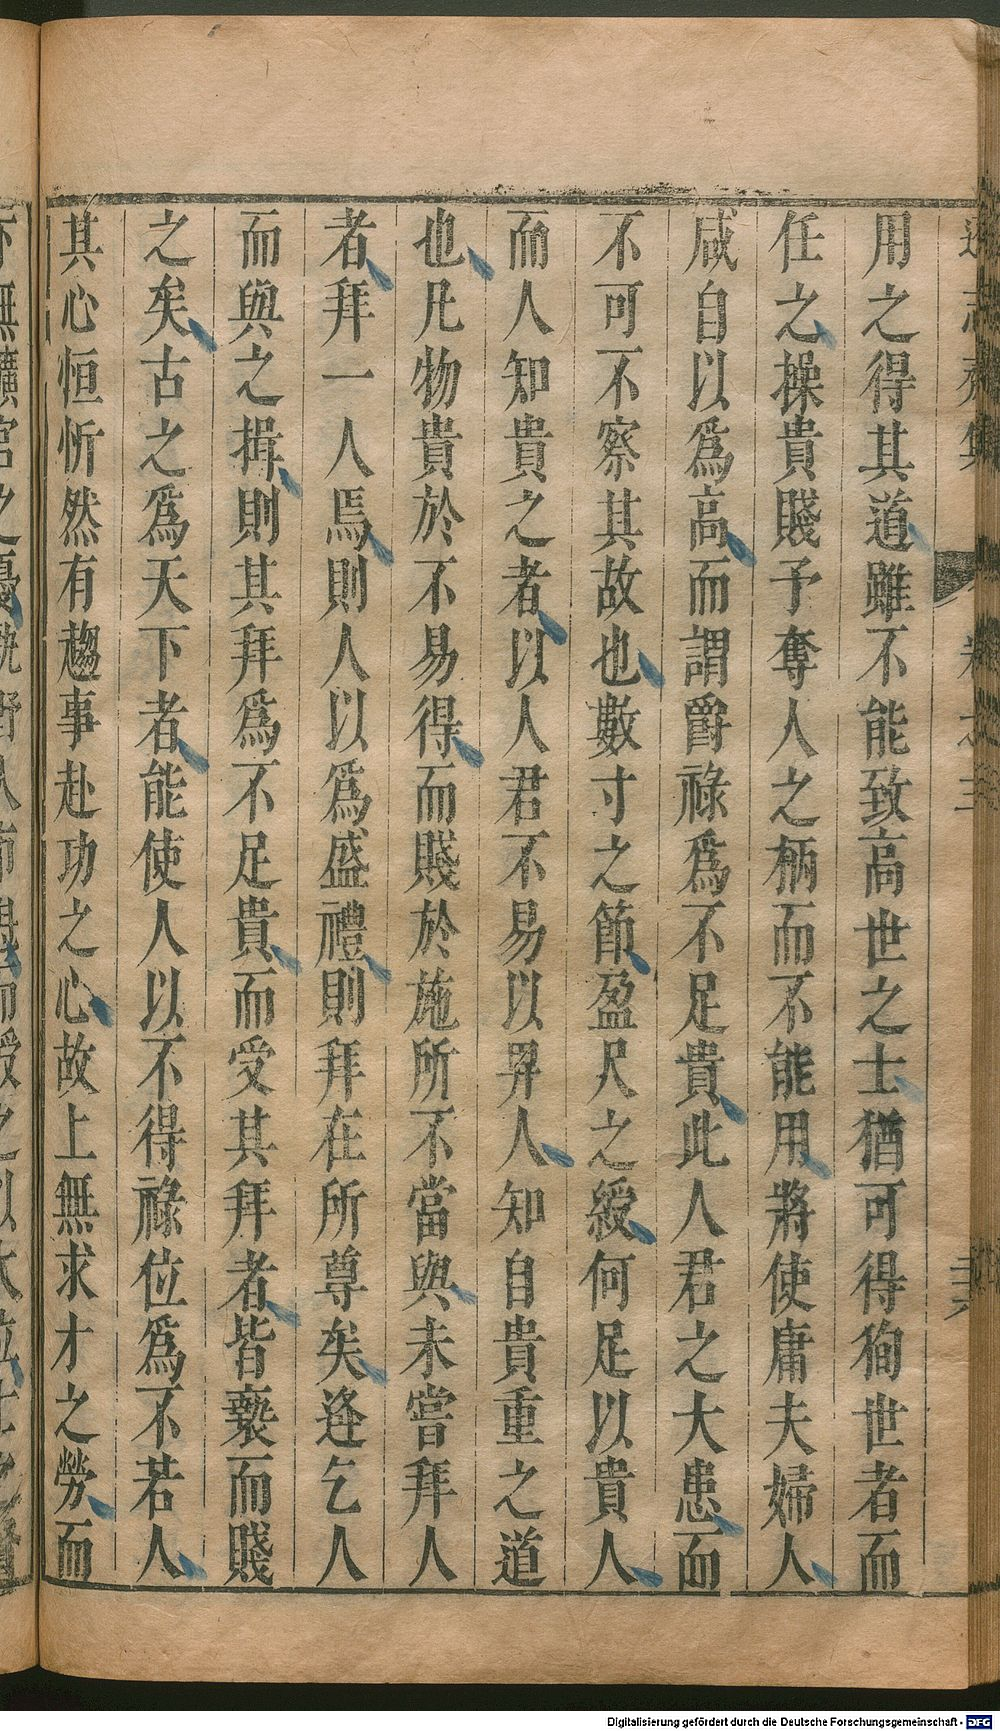 用之得其道雖不能致高世之士猶可得狥世者而
任之操貴賤予奪人之柄而不能用將使庸夫婦人
咸自以爲高而謂爵祿爲不足貴此人君之大患而
不可不察其故也數寸之節盈尺之綬何足以貴人
而人知貴之者以人君不易以畀人知自貴重之道
也凡物貴於不易得而賤於施所不當與未嘗拜人
者拜一人焉則人以爲盛禮則拜在所尊矣逢乞人
而與之揖則其拜爲不足貴而受其拜者皆褻而賤
之矣古之爲天下者能使人以不得祿位爲不若人
其心恒忻然有趨事赴功之心故上無求才之勞而
Digitalisierung gefördert durch die Deutsche Forschungsgemeinschaft - DFG